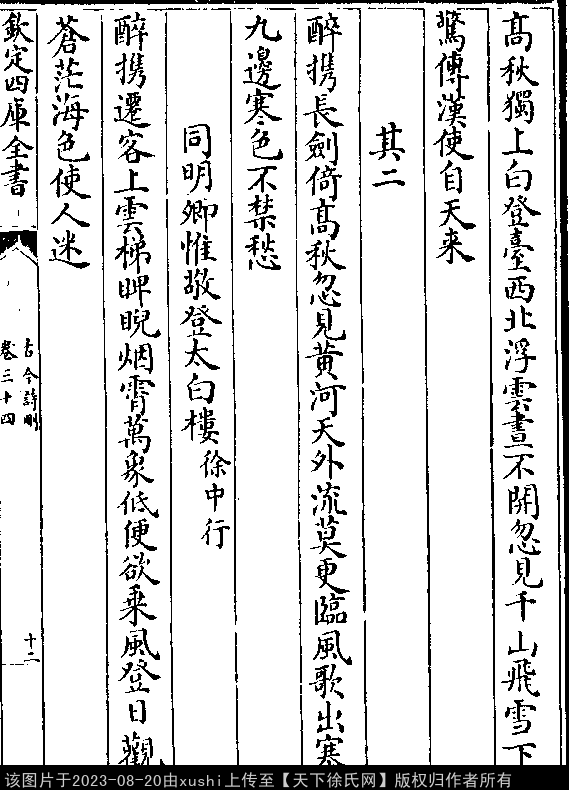 髙秋獨上白登臺西北浮雲晝不開忽見千山飛雪下
驚傳漢使自天来
其二
醉携長劍倚髙秋忽見黄河天外流莫更臨風歌出塞
九邊寒色不禁愁
同明卿惟敬登太白樓 徐中行
醉携遷客上雲梯睥睨烟霄萬象低便欲乗風登日觀
蒼茫海色使人迷
欽定四庫全書
古今詩刪
卷三十四
十二
该图片于2023-08-20由xushi上传至【天下徐氏网】版权归作者所有